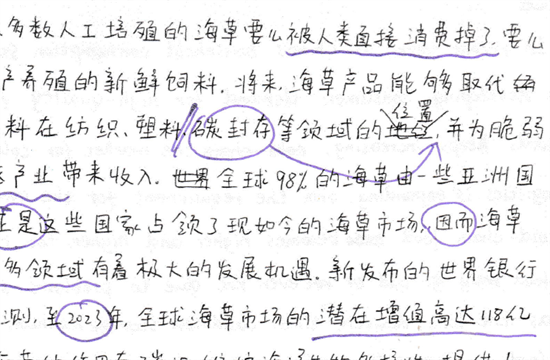 多数人工培殖的海草要么被人类直接消费掉了,要么
养殖的新鲜饲料.将来,海草产品能够取代
料在纺织、塑料、碳封存等领域的位置,并为脆弱
产业带来收入.世界全球98%的海草由一些亚洲国
是这些国家占领了现如今的海草市场,因而海草
多领域有着极大的发展机遇.新发布的世界银行
测,至2023年,全球海草市场的潜在增值高达118亿